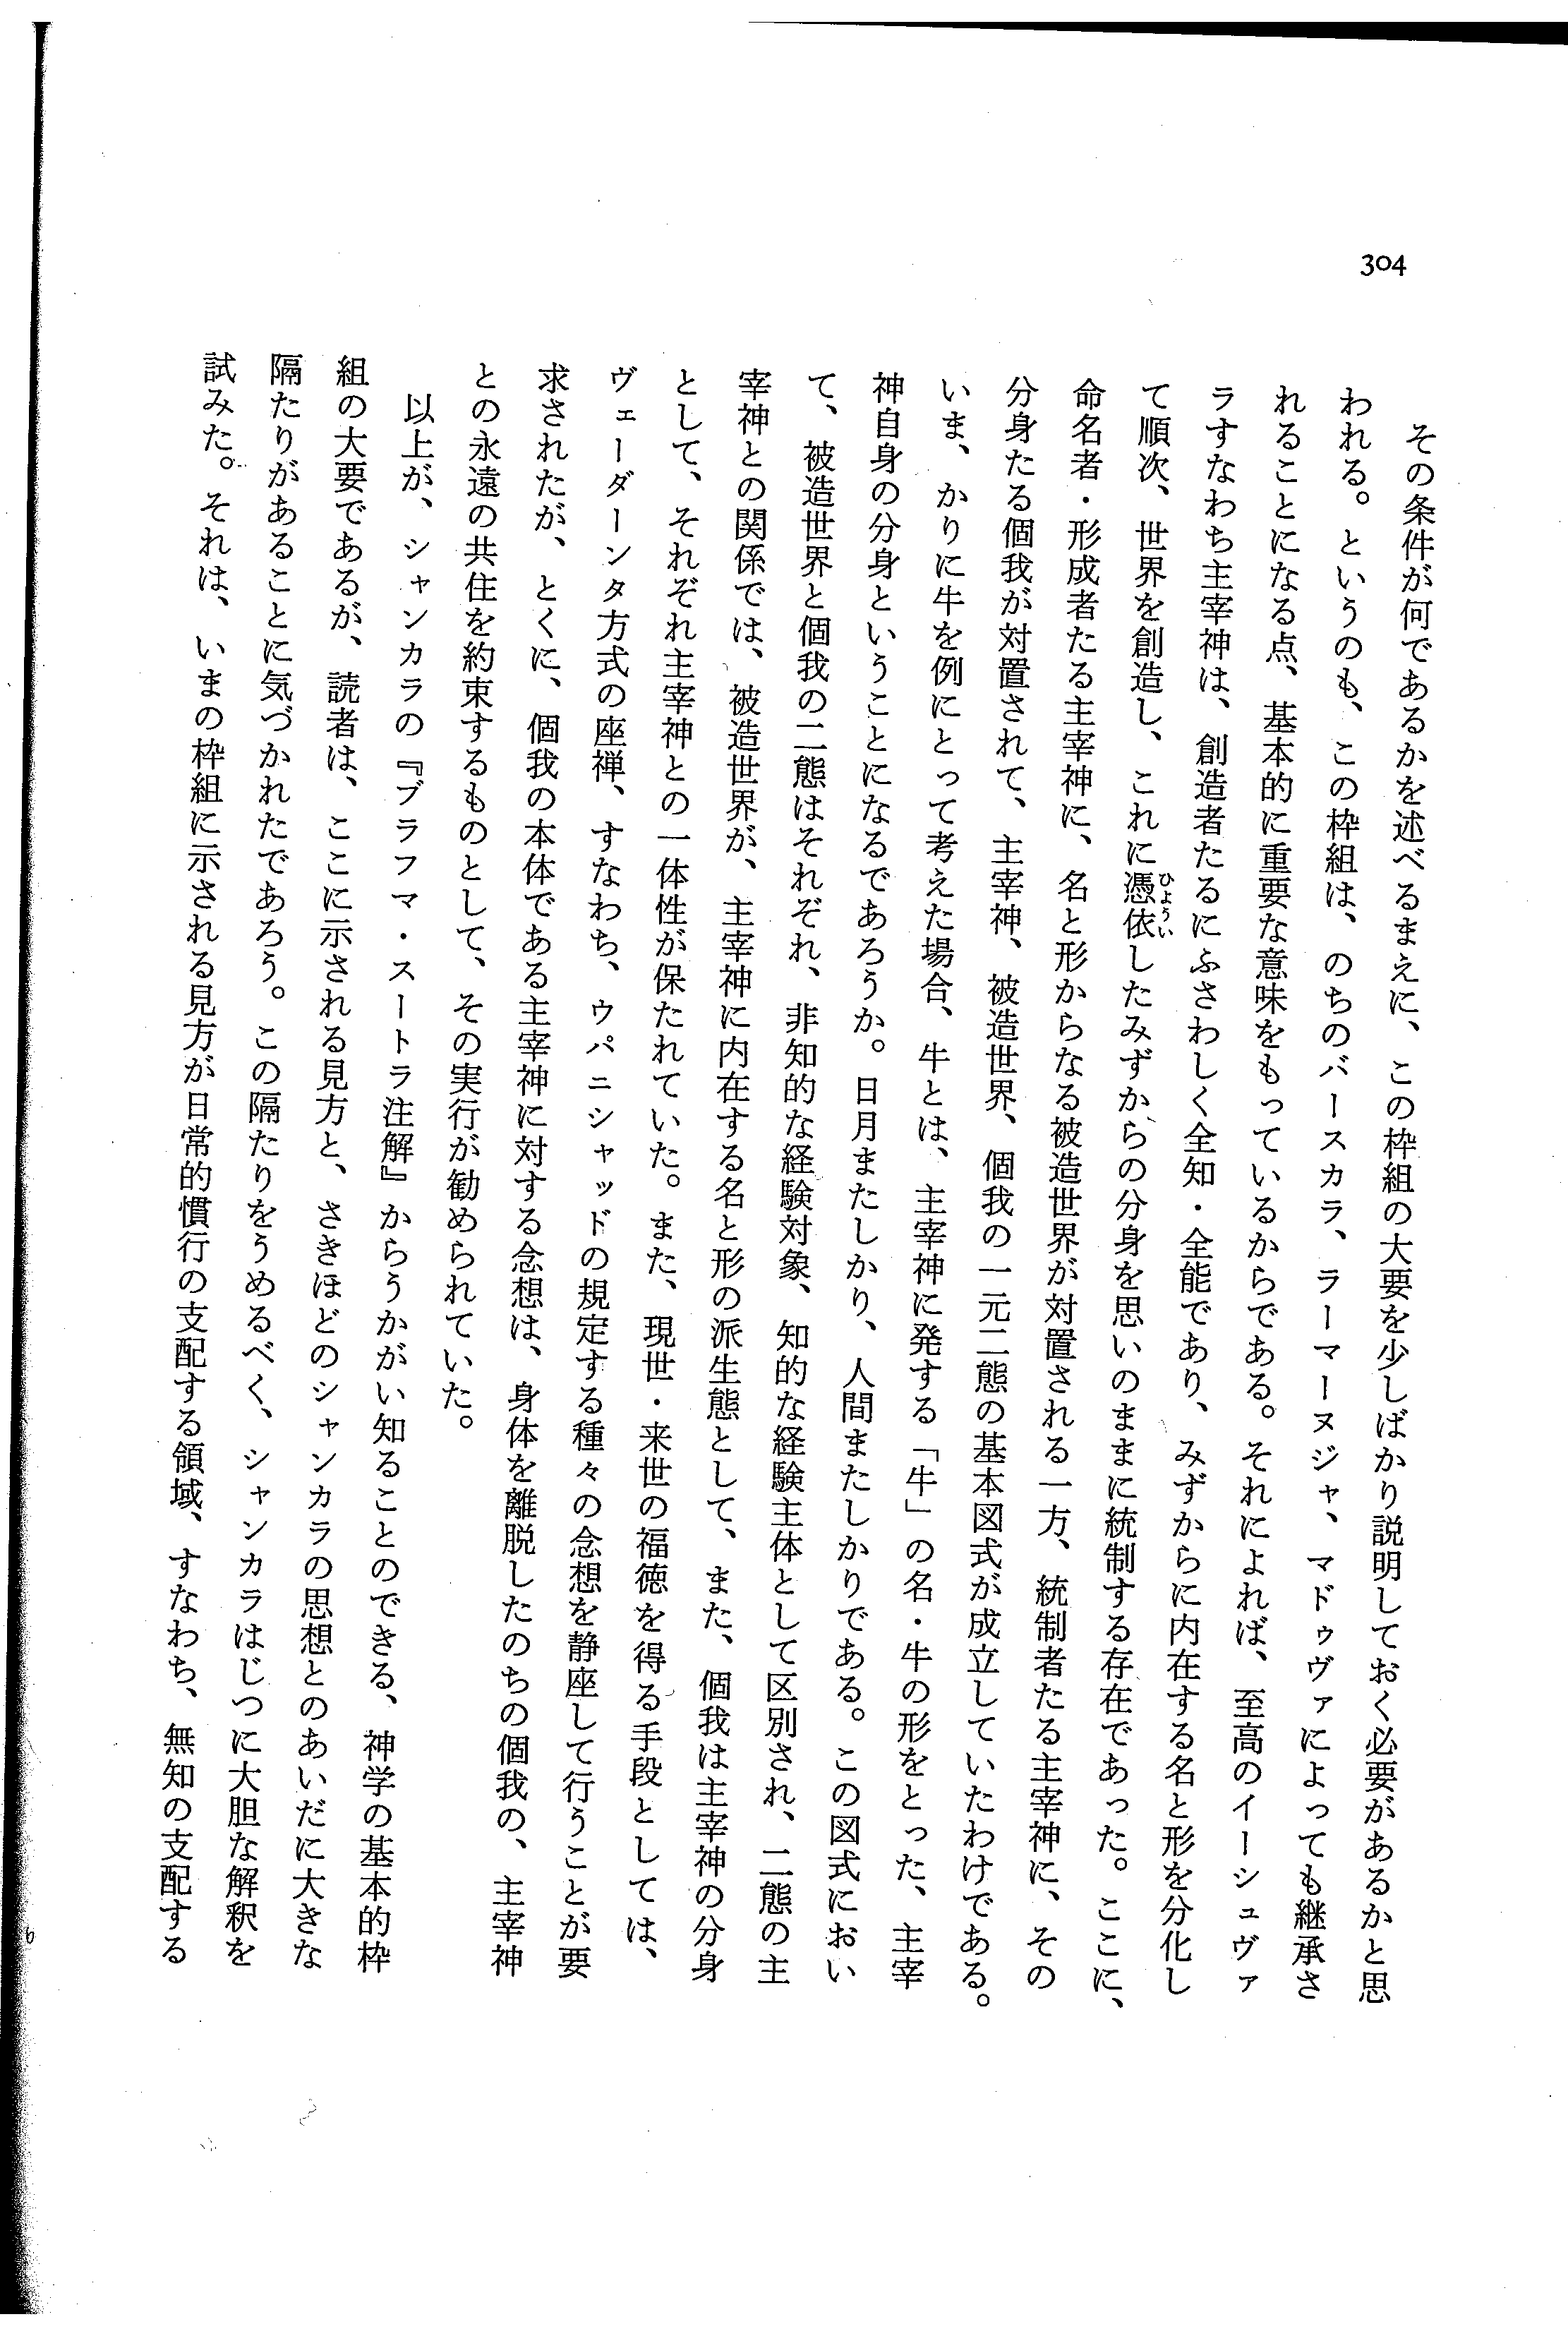 304
その条件が何であるかを述べるまえに、この枠組の大要を少しばかり説明しておく必要があるかと思
われる。というのも、この枠組は、のちのバースカラ、ラーマーヌジャ、マドゥヴァによっても継承さ
れることになる点、基本的に重要な意味をもっているからである。それによれば、至高のイーシュヴァ
ラすなわち主宰神は、創造者たるにふさわしく全知・全能であり、みずからに内在する名と形を分化し
て順次、世界を創造し、これに憑依ひょういしたみずからの分身を思いのままに統制する存在であった。ここに、
命名者・形成者たる主宰神に、名と形からなる被造世界が対置される一方、統制者たる主宰神に、その
分身たる個我が対置されて、主宰神、被造世界、個我の一元二態の基本図式が成立していたわけである。
いま、かりに牛を例にとって考えた場合、牛とは、主宰神に発する「牛」の名・牛の形をとった、主宰
神自身の分身ということになるであろうか。日月またしかり、人間またしかりである。この図式におい
て、被造世界と個我の二態はそれぞれ、非知的な経験対象、知的な経験主体として区別され、二態の主
宰神との関係では、被造世界が、主宰神に内在する名と形の派生態として、また、個我は主宰神の分身
として、それぞれ主宰神との一体性が保たれていた。また、現世・来世の福徳を得る手段としては、
ヴェーダーンタ方式の座禅、すなわち、ウパニシャッドの規定する種々の念想を静座して行うことが要
求されたが、とくに、個我の本体である主宰神に対する念想は、身体を離脱したのちの個我の、主宰神
との永遠の共住を約束するものとして、その実行が勧められていた。
以上が、シャンカラの『ブラフマ・スートラ注解』からうかがい知ることのできる、神学の基本的枠
組の大要であるが、読者は、ここに示される見方と、さきほどのシャンカラの思想とのあいだに大きな
隔たりがあることに気づかれたであろう。この隔たりをうめるべく、シャンカラはじつに大胆な解釈を
試みた。それは、いまの枠組に示される見方が日常的慣行の支配する領域、すなわち、無知の支配する